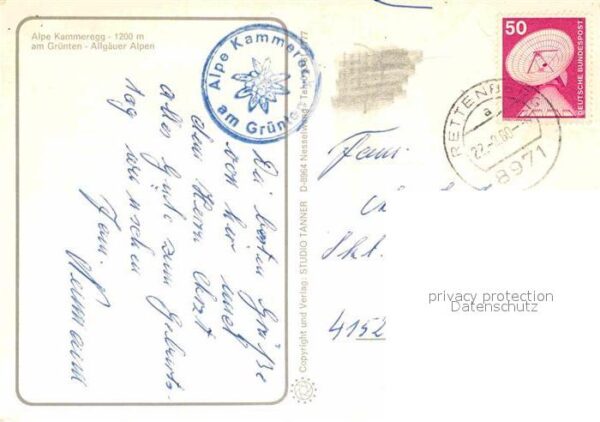 Alpe Kammeregg - 1200 m
am Grünten - Allgäuer Alpen
Alpe Kammeregg
am Grünten
Die besten Grüße
von hier und
dem Herrn Arzt
alles Gute zum Geburts-
tag wünschen
Fam. Neumann
Copyright und Verlag: STUDIO TANNER D-8964 Nesselwang
50
DEUTSCHE BUNDESPOST
RETTENBERG
a
8971
Fam.
4152
privacy protection
Datenschutz